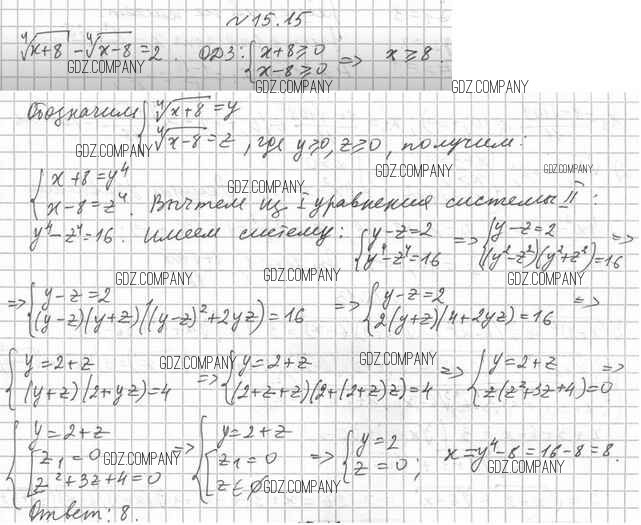 №15.15
⁴√(x+8) - ⁴√(x-8) = 2. ОДЗ: { x+8≥0 x-8≥0 => x≥8.
GDZ.COMPANY GDZ.COMPANY GDZ.COMPANY
Обозначим { ⁴√(x+8) = y
⁴√(x-8) = z, где y≥0, z≥0, получим:
GDZ.COMPANY GDZ.COMPANY GDZ.COMPANY
{ x+8=y⁴
GDZ.COMPANY
x-8=z⁴. Вычтем из I уравнения системы II:
y⁴-z⁴=16. Имеем систему: { y-z=2 y⁴-z⁴=16 => { y-z=2 (y²-z²)(y²+z²)=16 =>
GDZ.COMPANY GDZ.COMPANY GDZ.COMPANY
=> { y-z=2 (y-z)(y+z)((y-z)²+2yz)=16 => { y-z=2 2(y+z)(4+2yz)=16 =>
{ y=2+z (y+z)(2+yz)=4 => { y=2+z (2+z+z)(2+(2+z)z)=4 => { y=2+z z(z²+3z+4)=0 =>
GDZ.COMPANY GDZ.COMPANY
{ y=2+z [ z₁=0 z²+3z+4=0 => { y=2+z [ z₁=0 z∈∅ => { y=2 z=0; x=y⁴-8=16-8=8.
GDZ.COMPANY GDZ.COMPANY GDZ.COMPANY
Ответ: 8.